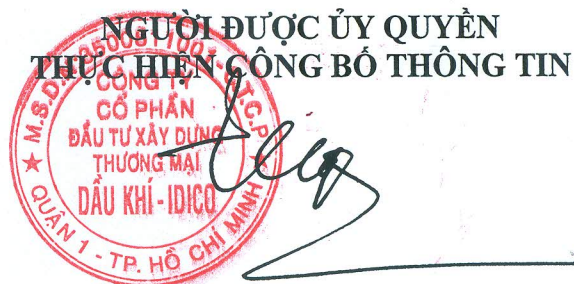 NGƯỜI ĐƯỢC ỦY QUYỀN
THỰC HIỆN CÔNG BỐ THÔNG TIN
CÔNG TY
CỔ PHẦN
ĐẦU TƯ XÂY DỰNG
THƯƠNG MẠI
DẦU KHÍ - IDICO
QUẬN 1 - TP. HỒ CHÍ MINH